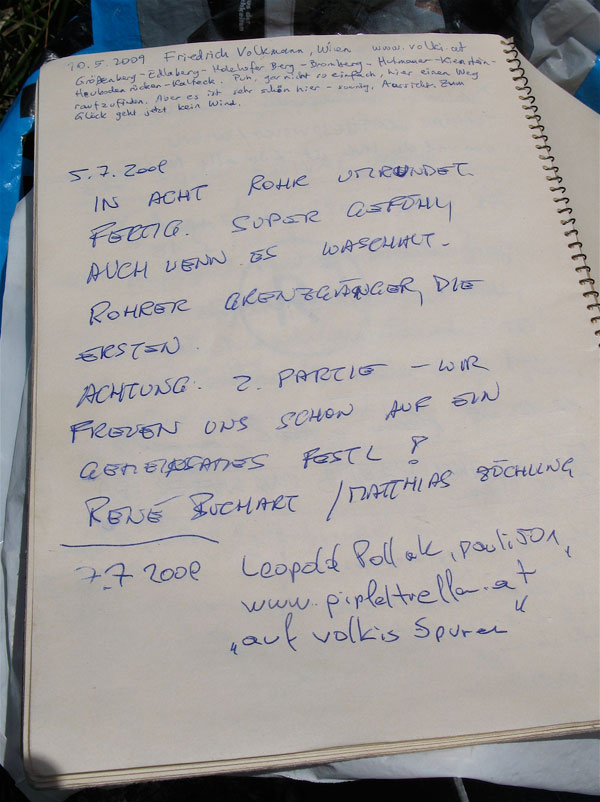 10.5.2009 Friedrich Volkmann, Wien www.volki.at
Größenberg - Edlaberg - Hefenhofer Berg - Bromberg - Hutmauer - Kienstein -
Heubodenrücken - Kalteck. Puh, gar nicht so einfach, hier einen Weg
raufzufinden. Aber es ist sehr schön hier - sonnig, Aussicht. Zum
Glück geht jetzt kein Wind.
5.7.2009
IN ACHT ROHR UMRUNDET.
FERTIG. SUPER GEFÜHL
AUCH WENN ES WASCHALT.
ROHRER GRENZGÄNGER, DIE
ERSTEN.
ACHTUNG: 2. PARTIE - WIR
FREUEN UNS SCHON AUF EIN
GEMEINSAMES FESTL!
RENÉ BUCHART / MATTHIAS ZÖCHLING
7.7.2009 Leopold Pollak, pauli501,
www.gipfeltreffen.at
"auf volkis Spuren"